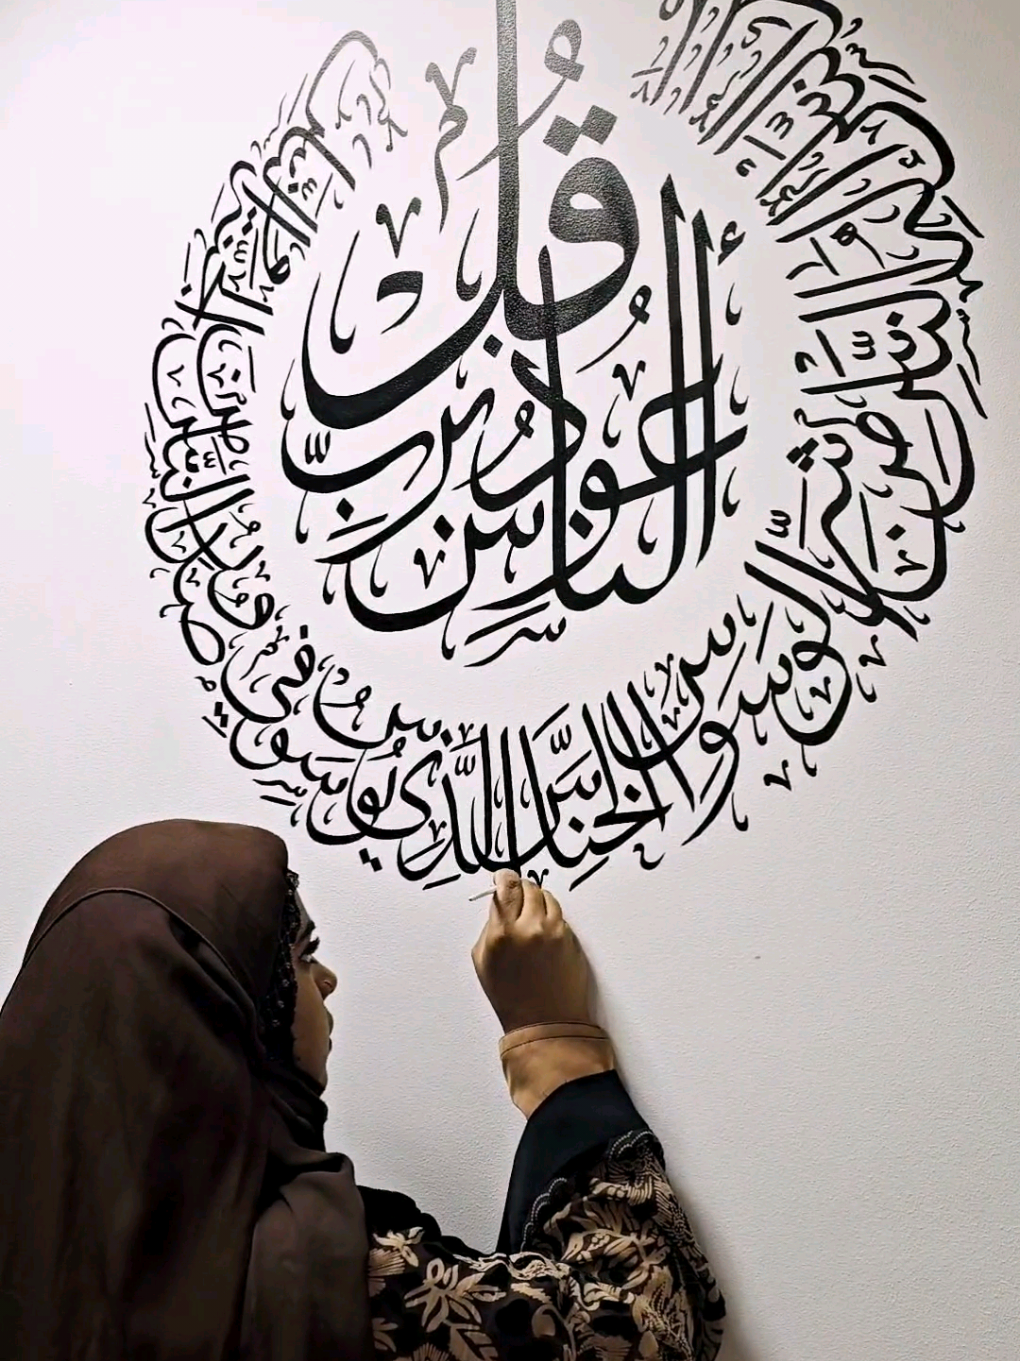 قُلْ أَعُوذُ بِرَبِّ النَّاسِ
مِن شَرِّ الْوَسْوَاسِ الْخَنَّاسِ الَّذِي يُوَسْوِسُ فِي صُدُورِ النَّاسِ مِنَ الْجِنَّةِ وَالنَّاسِ